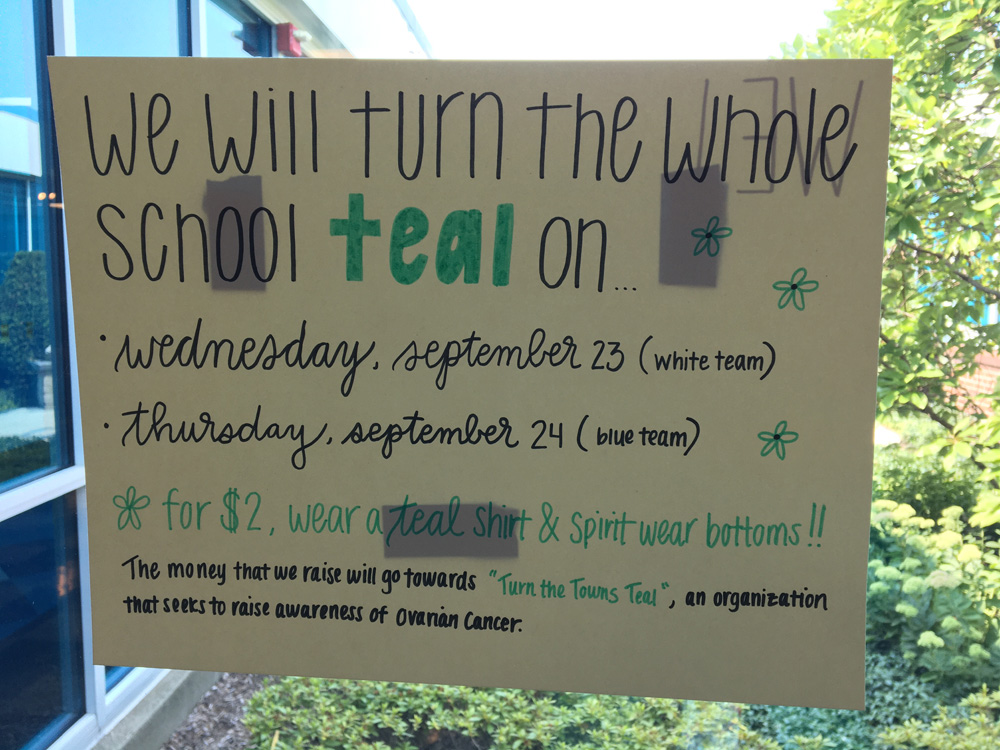 we will turn the whole
school teal on...
· wednesday, september 23 (white team)
· thursday, september 24 (blue team)
for $2, wear a teal shirt & spirit wear bottoms!!
The money that we raise will go towards "Turn the Towns Teal", an organization
that seeks to raise awareness of Ovarian Cancer.